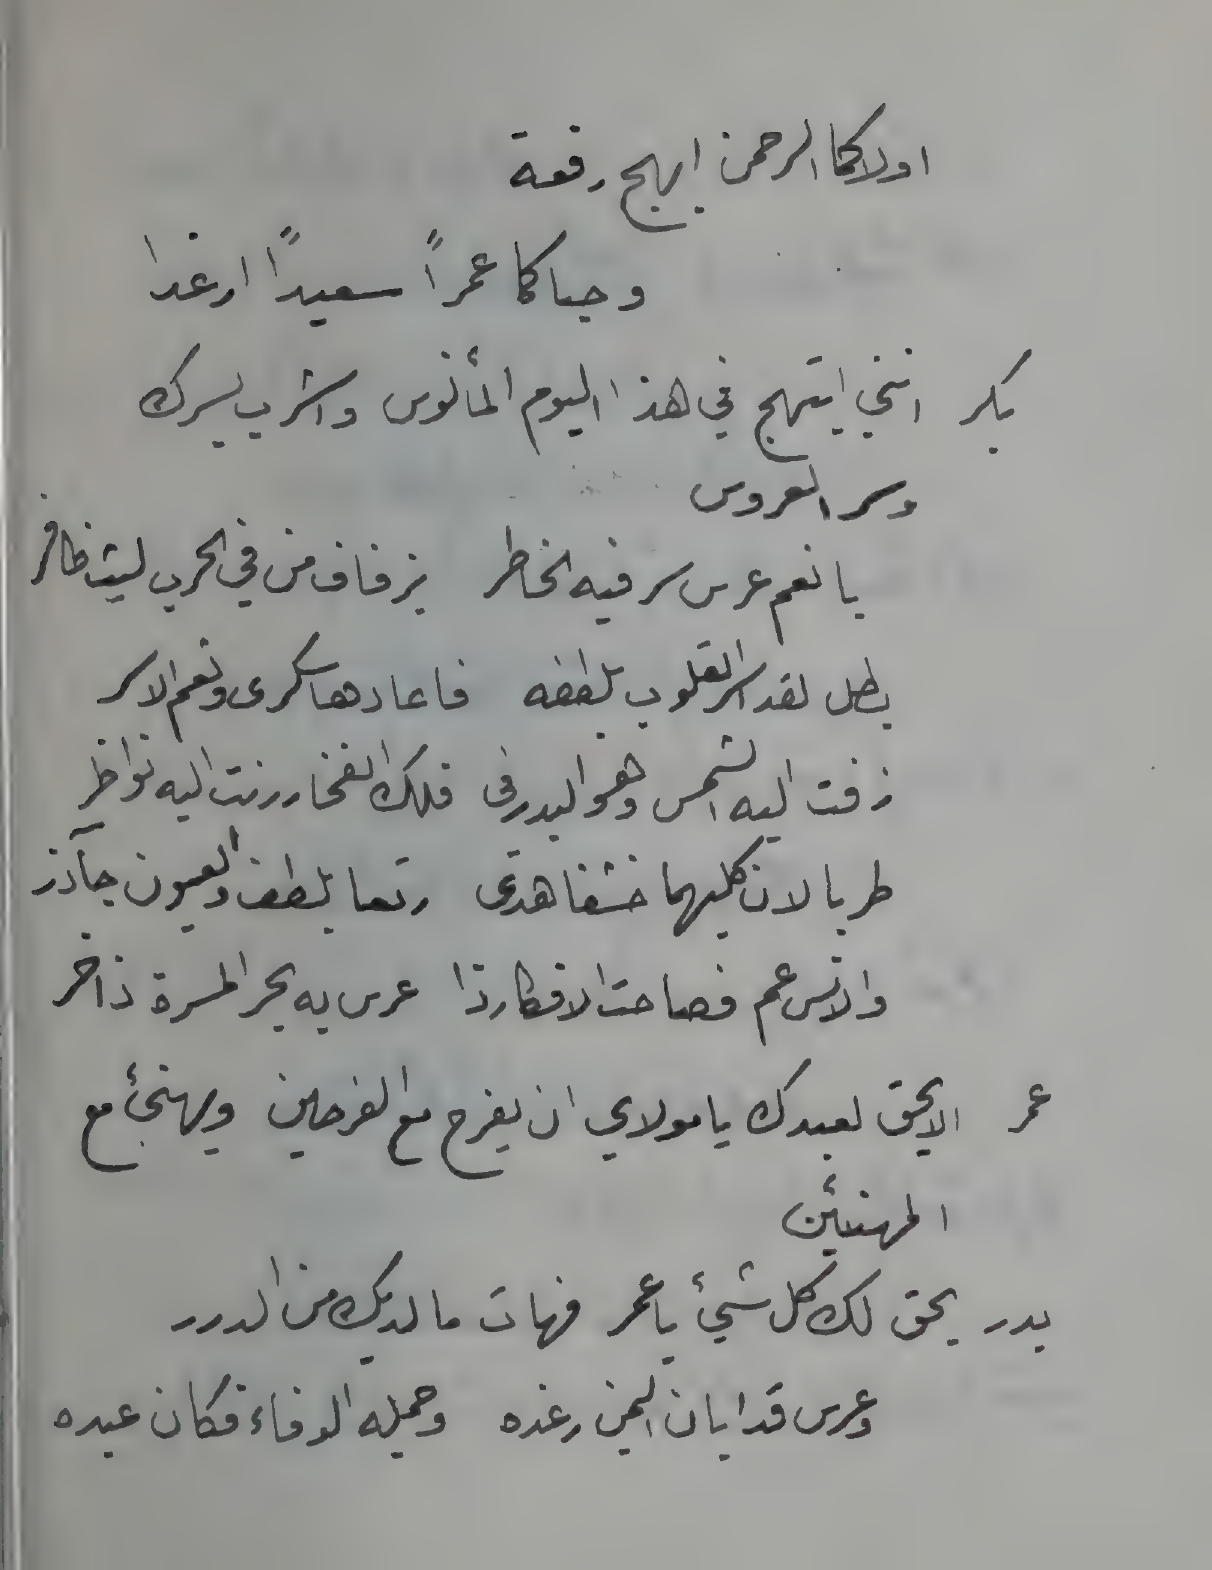 اولاكما الرحمن ابهج رفعة
وحباكما عمراً سعيداً ارغدا
بكر انني ابتهج في هذا اليوم المأنوس واشرب بسرك
وسر العروس
يا نعم عرس سر فيه الخاطر بزفاف من في الحرب ليث ظافر
بطل لقد اسر القلوب بلطفه فاعادها سكرى ونعم الاسر
زفت اليه الشمس وهو البدر في فلك الفخار رنت اليه نواظر
طربا لان كليهما خشفا هدى رتعا بلطف والعيون جآذر
والانس عم فصاحت الافكار ذا عرس به بحر المسرة ذاخر
عمر الا يحق لعبدك يا مولاي ان يفرح مع الفرحين ويهنئ مع
المهنئين
بدر يحق لك كل شيئ يا عمر فهات ما لديك من الدرر
وعرس قد ابان اليمن رغده وحميله الوفاء فكان عبده